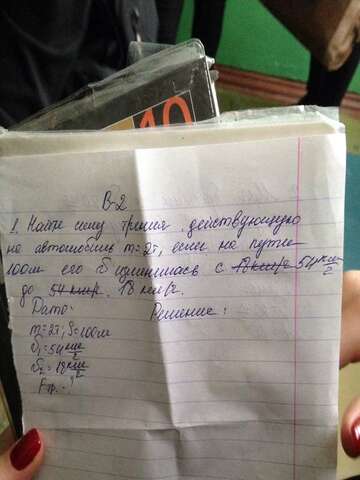 10
В-2
1. Найти силу трения, действующую
на автомобиль m=2т, если на пути
100м его υ изменилась с 18 км/ч 54 км/ч
до 54 км/ч. 18 км/ч.
Дано: Решение:
m=2т; S=100м
υ₁=54 км/ч
υ₂=18 км/ч
Fтр.-?